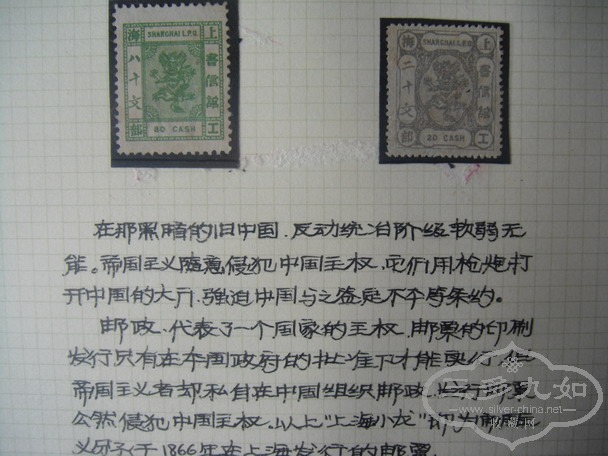 上海工部
SHANGHAI L.P.O.
書信館
八十文
80 CASH
上海工部
SHANGHAI L.P.O.
書信館
二十文
20 CASH
在那黑暗的旧中国,反动统治阶级软弱无
能。帝国主义随意侵犯中国主权,它们用枪炮打
开中国的大门,强迫中国与之签定不平等条约。
邮政,代表了一个国家的主权,邮票的印刷
发行只有在本国政府的批准下才能实行,但
帝国主义者却私自在中国组织邮政,发行邮票
公然侵犯中国主权,以上"上海小龙"即为帝国主
义分子于1866年在上海发行的邮票
www.silver-china.net
收藏网